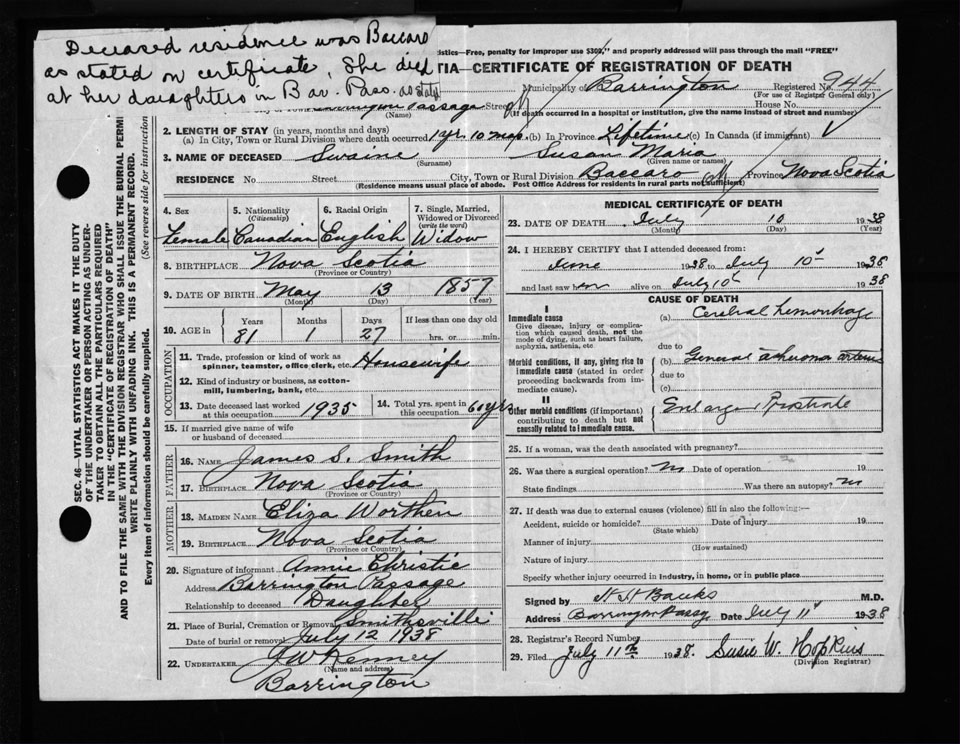 Deceased residence was Baccaro
as stated on certificate. She died
at her daughters in Bar. Pass. as stated
istics—Free, penalty for improper use $300," and properly addressed will pass through the mail "FREE"
TIA—CERTIFICATE OF REGISTRATION OF DEATH
Municipality of Barrington Registered No. 944
(For use of Registrar General only)
Passage Street House No.
(Name) (If death occurred in a hospital or institution, give the name instead of street and number)
2. LENGTH OF STAY (in years, months and days)
(a) In City, Town or Rural Division where death occurred 1 yr. 10 mos. (b) In Province Lifetime (c) In Canada (if immigrant)
3. NAME OF DECEASED Swaine Susan Maria
(Surname) (Given name or names)
RESIDENCE No. Street City, Town or Rural Division Baccaro Province Nova Scotia
(Residence means usual place of abode. Post Office Address for residents in rural parts not sufficient)
SEC. 46—VITAL STATISTICS ACT MAKES IT THE DUTY
OF THE UNDERTAKER OR PERSON ACTING AS UNDER-
TAKER TO OBTAIN ALL THE PARTICULARS REQUIRED
IN THE "CERTIFICATE OF REGISTRATION OF DEATH"
AND TO FILE THE SAME WITH THE DIVISION REGISTRAR WHO SHALL ISSUE THE BURIAL PERMI
WRITE PLAINLY WITH UNFADING INK. THIS IS A PERMANENT RECORD.
Every item of information should be carefully supplied. (See reverse side for instruction
4. Sex 5. Nationality (Citizenship) 6. Racial Origin 7. Single, Married, Widowed or Divorced (write the word)
Female Canadian English Widow
8. BIRTHPLACE Nova Scotia
(Province or Country)
9. DATE OF BIRTH May 13 1857
(Month) (Day) (Year)
10. AGE in Years Months Days If less than one day old
81 1 27 hrs. or min.
OCCUPATION
11. Trade, profession or kind of work as
spinner, teamster, office clerk, etc. Housewife
12. Kind of industry or business, as cotton-
mill, lumbering, bank, etc.
13. Date deceased last worked
at this occupation 1935
14. Total yrs. spent in
this occupation 60 yrs
15. If married give name of wife
or husband of deceased
FATHER
16. NAME James S. Smith
17. BIRTHPLACE Nova Scotia
(Province or Country)
MOTHER
18. MAIDEN NAME Eliza Worthen
19. BIRTHPLACE Nova Scotia
(Province or Country)
20. Signature of informant Annie Christie
Address Barrington Passage
Relationship to deceased Daughter
21. Place of Burial, Cremation or Removal Smithsville
Date of burial or removal July 12 1938
22. UNDERTAKER J W Kenney
(Name and address)
Barrington
MEDICAL CERTIFICATE OF DEATH
23. DATE OF DEATH July 10 1938
(Month) (Day) (Year)
24. I HEREBY CERTIFY that I attended deceased from:
June 1938 to July 10th 1938
and last saw her alive on July 10th 1938
CAUSE OF DEATH
I
Immediate cause
Give disease, injury or complica-
tion which caused death, not the
mode of dying, such as heart failure,
asphyxia, asthenia, etc
(a) Cerebral hemorrhage
due to
Morbid conditions, if any, giving rise to
immediate cause (stated in order
proceeding backwards from im-
mediate cause).
(b) General
due to
(c)
II
Other morbid conditions (if important)
contributing to death but not
causally related to immediate cause.
Enlarged Prostate
25. If a woman, was the death associated with pregnancy?
26. Was there a surgical operation? no Date of operation 19
State findings Was there an autopsy? no
27. If death was due to external causes (violence) fill in also the following:—
Accident, suicide or homicide? Date of injury 19
(State which)
Manner of injury
(How sustained)
Nature of injury
Specify whether injury occurred in industry, in home, or in public place
Signed by H H Banks M.D.
Address Barrington Passg Date July 11th 1938
28. Registrar's Record Number
29. Filed July 11th 1938. Susie W. Hopkins
(Division Registrar)